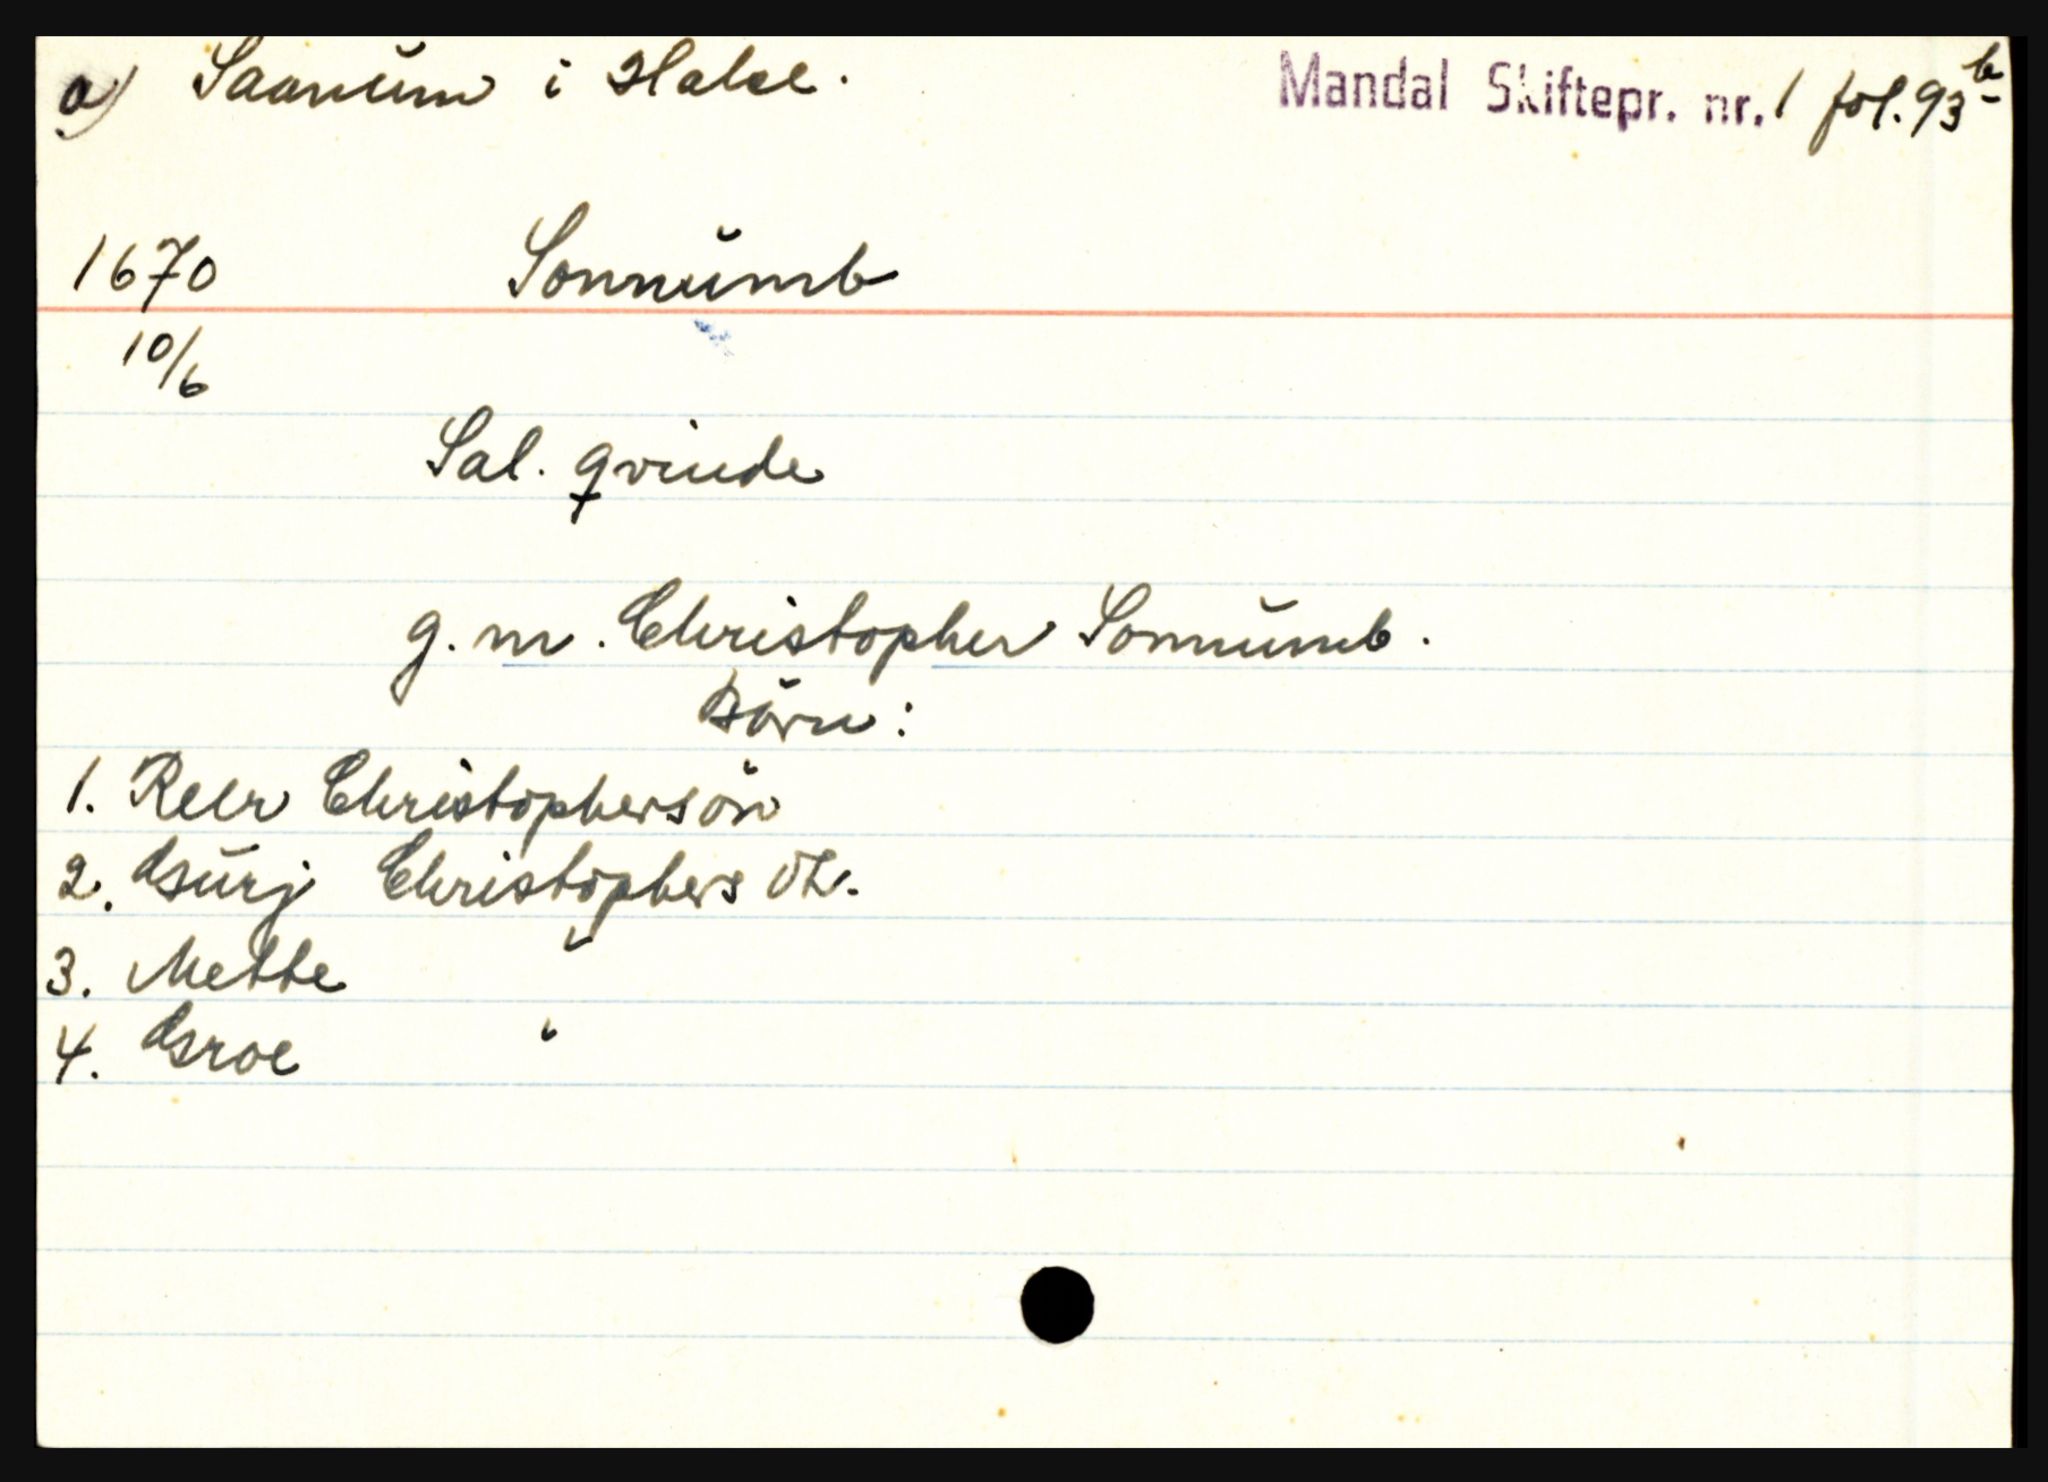 a) Saanum i Halse. Mandal Skiftepr. nr. 1 fol. 93 b
1670 Sonnumb
10/6
Sal. qvinde
g. m. Christopher Sonnumb.
Börn:
1. Reer Christophersön
2. Gurj Christophers dtr.
3. Mette "
4. Groe "